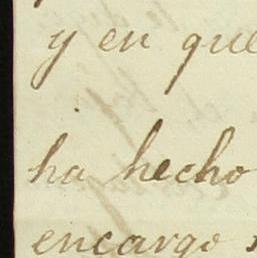 y en que
ha hecho
encargo